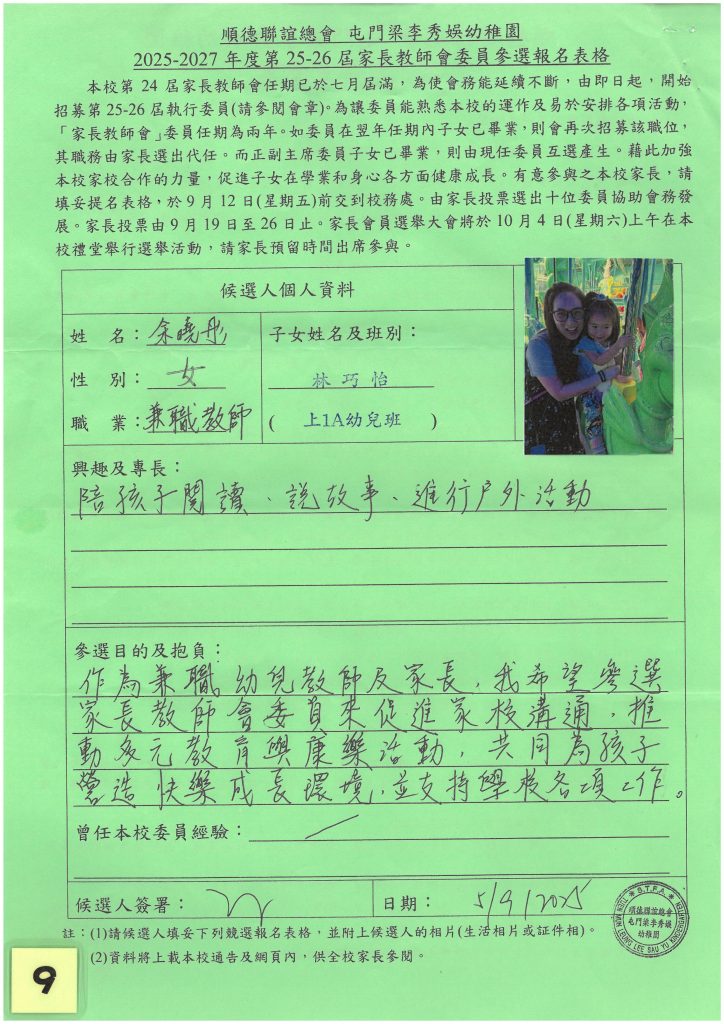 順德聯誼總會 屯門梁李秀娛幼稚園
2025-2027 年度第 25-26 屆家長教師會委員參選報名表格
本校第 24 屆家長教師會任期已於七月屆滿，為使會務能延續不斷，由即日起，開始
招募第 25-26 屆執行委員(請參閱會章)。為讓委員能熟悉本校的運作及易於安排各項活動，
「家長教師會」委員任期為兩年。如委員在翌年任期內子女已畢業，則會再次招募該職位，
其職務由家長選出代任。而正副主席委員子女已畢業，則由現任委員互選產生。藉此加強
本校家校合作的力量，促進子女在學業和身心各方面健康成長。有意參與之本校家長，請
填妥提名表格，於 9 月 12 日(星期五)前交到校務處。由家長投票選出十位委員協助會務發
展。家長投票由 9 月 19 日至 26 日止。家長會員選舉大會將於 10 月 4 日(星期六)上午在本
校禮堂舉行選舉活動，請家長預留時間出席參與。
候選人個人資料
姓 名：余曉彤
子女姓名及班別：
性 別：女
林巧怡
職 業：兼職教師
( 上1A幼兒班 )
興趣及專長：
陪孩子閱讀、說故事、進行戶外活動
參選目的及抱負：
作為兼職幼兒教師及家長，我希望參選
家長教師會委員來促進家校溝通，推
動多元教育與康樂活動，共同為孩子
營造快樂成長環境，並支持學校各項工作。
曾任本校委員經驗：
候選人簽署：
日期：5/9/2025
S.T.F.A.
順德聯誼總會
屯門梁李秀娛
幼稚園
TUEN MUN LEUNG LEE SAU YU KINDERGARTEN
註：(1)請候選人填妥下列競選報名表格，並附上候選人的相片(生活相片或証件相)。
(2)資料將上載本校通告及網頁內，供全校家長參閱。
9